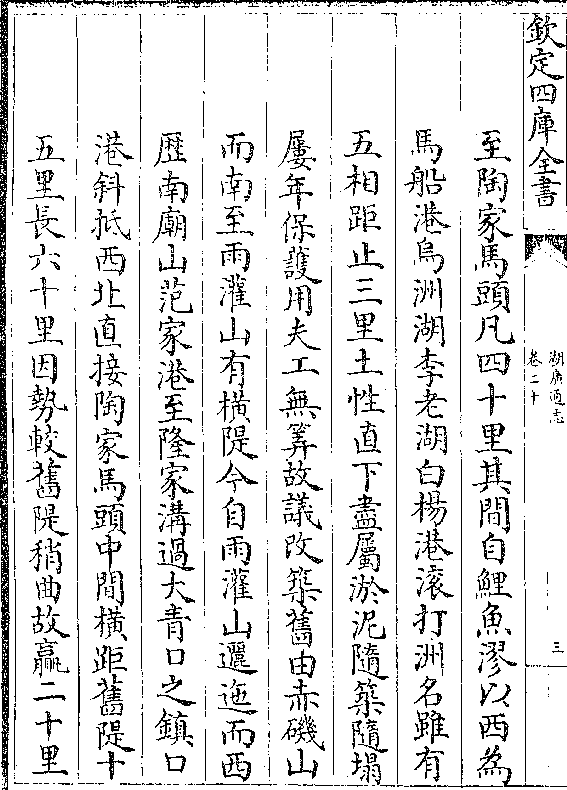 欽定四庫全書
湖廣通志
卷二十
三
至陶家馬頭凡四十里其間自鯉魚漻以西為
馬船港烏洲湖李老湖白楊港滚打洲名雖有
五相距止三里土性直下盡屬淤泥隨築隨塌
屢年保護用夫工無筭故議改築舊由赤磯山
而南至雨灌山有横隄今自雨灌山邐迤而西
歴南廟山范家港至隆家溝過大青口之鎮口
港斜抵西北直接陶家馬頭中間横距舊隄十
五里長六十里因勢較舊隄稍曲故贏二十里